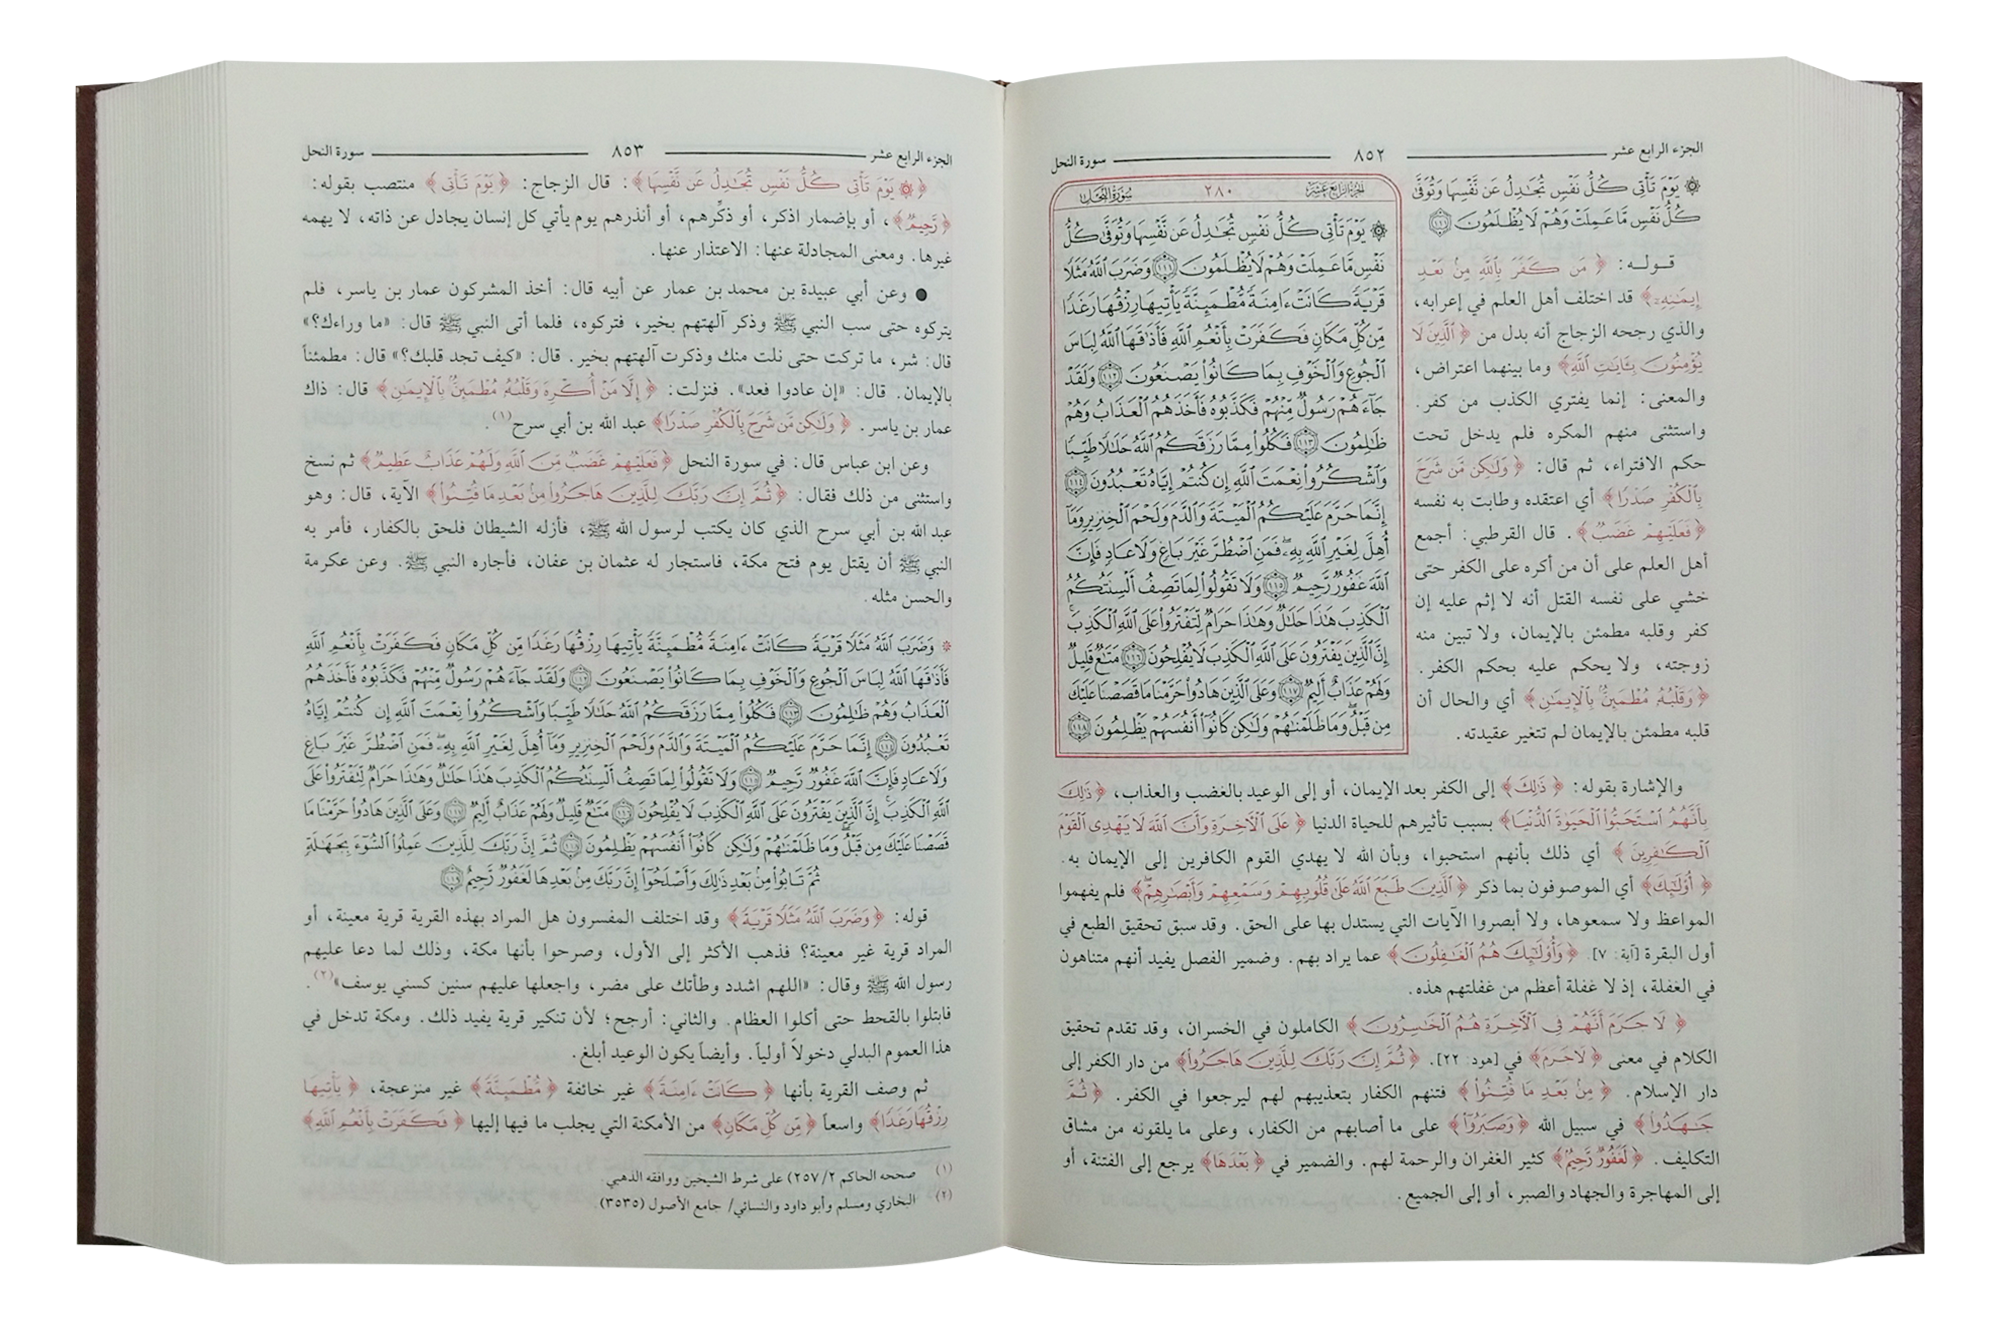 الجزء الرابع عشر ٨٥٢ سورة النحل
۞ يَوْمَ تَأْتِى كُلُّ نَفْسٍ تُجَٰدِلُ عَن نَّفْسِهَا وَتُوَفَّىٰ
كُلُّ نَفْسٍ مَّا عَمِلَتْ وَهُمْ لَا يُظْلَمُونَ ﴿١١١﴾
قـولـه: ﴿مَن كَفَرَ بِٱللَّهِ مِنۢ بَعْدِ
إِيمَٰنِهِۦ﴾ قد اختلف أهل العلم في إعرابه،
والذي رجحه الزجاج أنه بدل من ﴿ٱلَّذِينَ لَا
يُؤْمِنُونَ بِـَٔايَٰتِ ٱللَّهِ﴾ وما بينهما اعتراض،
والمعنى: إنما يفتري الكذب من كفر.
واستثنى منهم المكره فلم يدخل تحت
حكم الافتراء، ثم قال: ﴿وَلَٰكِن مَّن شَرَحَ
بِٱلْكُفْرِ صَدْرًا﴾ أي اعتقده وطابت به نفسه
﴿فَعَلَيْهِمْ غَضَبٌ﴾. قال القرطبي: أجمع
أهل العلم على أن من أكره على الكفر حتى
خشي على نفسه القتل أنه لا إثم عليه إن
كفر وقلبه مطمئن بالإيمان، ولا تبين منه
زوجته، ولا يحكم عليه بحكم الكفر.
﴿وَقَلْبُهُۥ مُطْمَئِنٌّۢ بِٱلْإِيمَٰنِ﴾ أي والحال أن
قلبه مطمئن بالإيمان لم تتغير عقيدته.
الجزء الرابع عشر ٢٨٠ سورة النحل
۞ يَوْمَ تَأْتِى كُلُّ نَفْسٍ تُجَٰدِلُ عَن نَّفْسِهَا وَتُوَفَّىٰ كُلُّ
نَفْسٍ مَّا عَمِلَتْ وَهُمْ لَا يُظْلَمُونَ ﴿١١١﴾ وَضَرَبَ ٱللَّهُ مَثَلًا
قَرْيَةً كَانَتْ ءَامِنَةً مُّطْمَئِنَّةً يَأْتِيهَا رِزْقُهَا رَغَدًا
مِّن كُلِّ مَكَانٍ فَكَفَرَتْ بِأَنْعُمِ ٱللَّهِ فَأَذَٰقَهَا ٱللَّهُ لِبَاسَ
ٱلْجُوعِ وَٱلْخَوْفِ بِمَا كَانُوا۟ يَصْنَعُونَ ﴿١١٢﴾ وَلَقَدْ
جَآءَهُمْ رَسُولٌ مِّنْهُمْ فَكَذَّبُوهُ فَأَخَذَهُمُ ٱلْعَذَابُ وَهُمْ
ظَٰلِمُونَ ﴿١١٣﴾ فَكُلُوا۟ مِمَّا رَزَقَكُمُ ٱللَّهُ حَلَٰلًا طَيِّبًا
وَٱشْكُرُوا۟ نِعْمَتَ ٱللَّهِ إِن كُنتُمْ إِيَّاهُ تَعْبُدُونَ ﴿١١٤﴾
إِنَّمَا حَرَّمَ عَلَيْكُمُ ٱلْمَيْتَةَ وَٱلدَّمَ وَلَحْمَ ٱلْخِنزِيرِ وَمَآ
أُهِلَّ لِغَيْرِ ٱللَّهِ بِهِۦ ۖ فَمَنِ ٱضْطُرَّ غَيْرَ بَاغٍ وَلَا عَادٍ فَإِنَّ
ٱللَّهَ غَفُورٌ رَّحِيمٌ ﴿١١٥﴾ وَلَا تَقُولُوا۟ لِمَا تَصِفُ أَلْسِنَتُكُمُ
ٱلْكَذِبَ هَٰذَا حَلَٰلٌ وَهَٰذَا حَرَامٌ لِّتَفْتَرُوا۟ عَلَى ٱللَّهِ ٱلْكَذِبَ ۚ
إِنَّ ٱلَّذِينَ يَفْتَرُونَ عَلَى ٱللَّهِ ٱلْكَذِبَ لَا يُفْلِحُونَ ﴿١١٦﴾ مَتَٰعٌ قَلِيلٌ
وَلَهُمْ عَذَابٌ أَلِيمٌ ﴿١١٧﴾ وَعَلَى ٱلَّذِينَ هَادُوا۟ حَرَّمْنَا مَا قَصَصْنَا عَلَيْكَ
مِن قَبْلُ ۖ وَمَا ظَلَمْنَٰهُمْ وَلَٰكِن كَانُوٓا۟ أَنفُسَهُمْ يَظْلِمُونَ ﴿١١٨﴾
والإشارة بقوله: ﴿ذَٰلِكَ﴾ إلى الكفر بعد الإيمان، أو إلى الوعيد بالغضب والعذاب، ﴿ذَٰلِكَ
بِأَنَّهُمُ ٱسْتَحَبُّوا۟ ٱلْحَيَوٰةَ ٱلدُّنْيَا﴾ بسبب تأثيرهم للحياة الدنيا ﴿عَلَى ٱلْـَٔاخِرَةِ وَأَنَّ ٱللَّهَ لَا يَهْدِى ٱلْقَوْمَ
ٱلْكَٰفِرِينَ﴾ أي ذلك بأنهم استحبوا، وبأن الله لا يهدي القوم الكافرين إلى الإيمان به.
﴿أُو۟لَٰٓئِكَ﴾ أي الموصوفون بما ذكر ﴿ٱلَّذِينَ طَبَعَ ٱللَّهُ عَلَىٰ قُلُوبِهِمْ وَسَمْعِهِمْ وَأَبْصَٰرِهِمْ ۖ﴾ فلم يفهموا
المواعظ ولا سمعوها، ولا أبصروا الآيات التي يستدل بها على الحق. وقد سبق تحقيق الطبع في
أول البقرة [آية: ٧]. ﴿وَأُو۟لَٰٓئِكَ هُمُ ٱلْغَٰفِلُونَ﴾ عما يراد بهم. وضمير الفصل يفيد أنهم متناهون
في الغفلة، إذ لا غفلة أعظم من غفلتهم هذه.
﴿لَا جَرَمَ أَنَّهُمْ فِى ٱلْـَٔاخِرَةِ هُمُ ٱلْخَٰسِرُونَ﴾ الكاملون في الخسران، وقد تقدم تحقيق
الكلام في معنى ﴿لَا جَرَمَ﴾ في [هود: ٢٢]. ﴿ثُمَّ إِنَّ رَبَّكَ لِلَّذِينَ هَاجَرُوا۟﴾ من دار الكفر إلى
دار الإسلام. ﴿مِنۢ بَعْدِ مَا فُتِنُوا۟﴾ فتنهم الكفار بتعذيبهم لهم ليرجعوا في الكفر. ﴿ثُمَّ
جَٰهَدُوا۟﴾ في سبيل الله ﴿وَصَبَرُوٓا۟﴾ على ما أصابهم من الكفار، وعلى ما يلقونه من مشاق
التكليف. ﴿لَغَفُورٌ رَّحِيمٌ﴾ كثير الغفران والرحمة لهم. والضمير في ﴿بَعْدِهَا﴾ يرجع إلى الفتنة، أو
إلى المهاجرة والجهاد والصبر، أو إلى الجميع.
الجزء الرابع عشر ٨٥٣ سورة النحل
﴿۞ يَوْمَ تَأْتِى كُلُّ نَفْسٍ تُجَٰدِلُ عَن نَّفْسِهَا﴾: قال الزجاج: ﴿يَوْمَ تَأْتِى﴾ منتصب بقوله:
﴿رَّحِيمٌ﴾، أو بإضمار اذكر، أو ذكِّرهم، أو أنذرهم يوم يأتي كل إنسان يجادل عن ذاته، لا يهمه
غيرها. ومعنى المجادلة عنها: الاعتذار عنها.
● وعن أبي عبيدة بن محمد بن عمار عن أبيه قال: أخذ المشركون عمار بن ياسر، فلم
يتركوه حتى سب النبي ﷺ وذكر آلهتهم بخير، فتركوه، فلما أتى النبي ﷺ قال: «ما وراءك؟»
قال: شر، ما تركت حتى نلت منك وذكرت آلهتهم بخير. قال: «كيف تجد قلبك؟» قال: مطمئناً
بالإيمان. قال: «إن عادوا فعد». فنزلت: ﴿إِلَّا مَنْ أُكْرِهَ وَقَلْبُهُۥ مُطْمَئِنٌّۢ بِٱلْإِيمَٰنِ﴾ قال: ذاك
عمار بن ياسر. ﴿وَلَٰكِن مَّن شَرَحَ بِٱلْكُفْرِ صَدْرًا﴾ عبد الله بن أبي سرح(١).
وعن ابن عباس قال: في سورة النحل ﴿فَعَلَيْهِمْ غَضَبٌ مِّنَ ٱللَّهِ وَلَهُمْ عَذَابٌ عَظِيمٌ﴾ ثم نسخ
واستثنى من ذلك فقال: ﴿ثُمَّ إِنَّ رَبَّكَ لِلَّذِينَ هَاجَرُوا۟ مِنۢ بَعْدِ مَا فُتِنُوا۟﴾ الآية، قال: وهو
عبد الله بن أبي سرح الذي كان يكتب لرسول الله ﷺ، فأزله الشيطان فلحق بالكفار، فأمر به
النبي ﷺ أن يقتل يوم فتح مكة، فاستجار له عثمان بن عفان، فأجاره النبي ﷺ. وعن عكرمة
والحسن مثله.
* وَضَرَبَ ٱللَّهُ مَثَلًا قَرْيَةً كَانَتْ ءَامِنَةً مُّطْمَئِنَّةً يَأْتِيهَا رِزْقُهَا رَغَدًا مِّن كُلِّ مَكَانٍ فَكَفَرَتْ بِأَنْعُمِ ٱللَّهِ
فَأَذَٰقَهَا ٱللَّهُ لِبَاسَ ٱلْجُوعِ وَٱلْخَوْفِ بِمَا كَانُوا۟ يَصْنَعُونَ ﴿١١٢﴾ وَلَقَدْ جَآءَهُمْ رَسُولٌ مِّنْهُمْ فَكَذَّبُوهُ فَأَخَذَهُمُ
ٱلْعَذَابُ وَهُمْ ظَٰلِمُونَ ﴿١١٣﴾ فَكُلُوا۟ مِمَّا رَزَقَكُمُ ٱللَّهُ حَلَٰلًا طَيِّبًا وَٱشْكُرُوا۟ نِعْمَتَ ٱللَّهِ إِن كُنتُمْ إِيَّاهُ
تَعْبُدُونَ ﴿١١٤﴾ إِنَّمَا حَرَّمَ عَلَيْكُمُ ٱلْمَيْتَةَ وَٱلدَّمَ وَلَحْمَ ٱلْخِنزِيرِ وَمَآ أُهِلَّ لِغَيْرِ ٱللَّهِ بِهِۦ ۖ فَمَنِ ٱضْطُرَّ غَيْرَ بَاغٍ
وَلَا عَادٍ فَإِنَّ ٱللَّهَ غَفُورٌ رَّحِيمٌ ﴿١١٥﴾ وَلَا تَقُولُوا۟ لِمَا تَصِفُ أَلْسِنَتُكُمُ ٱلْكَذِبَ هَٰذَا حَلَٰلٌ وَهَٰذَا حَرَامٌ لِّتَفْتَرُوا۟ عَلَى
ٱللَّهِ ٱلْكَذِبَ ۚ إِنَّ ٱلَّذِينَ يَفْتَرُونَ عَلَى ٱللَّهِ ٱلْكَذِبَ لَا يُفْلِحُونَ ﴿١١٦﴾ مَتَٰعٌ قَلِيلٌ وَلَهُمْ عَذَابٌ أَلِيمٌ ﴿١١٧﴾ وَعَلَى ٱلَّذِينَ هَادُوا۟ حَرَّمْنَا مَا
قَصَصْنَا عَلَيْكَ مِن قَبْلُ ۖ وَمَا ظَلَمْنَٰهُمْ وَلَٰكِن كَانُوٓا۟ أَنفُسَهُمْ يَظْلِمُونَ ﴿١١٨﴾ ثُمَّ إِنَّ رَبَّكَ لِلَّذِينَ عَمِلُوا۟ ٱلسُّوٓءَ بِجَهَٰلَةٍ
ثُمَّ تَابُوا۟ مِنۢ بَعْدِ ذَٰلِكَ وَأَصْلَحُوٓا۟ إِنَّ رَبَّكَ مِنۢ بَعْدِهَا لَغَفُورٌ رَّحِيمٌ ﴿١١٩﴾
قوله: ﴿وَضَرَبَ ٱللَّهُ مَثَلًا قَرْيَةً﴾ وقد اختلف المفسرون هل المراد بهذه القرية قرية معينة، أو
المراد قرية غير معينة؟ فذهب الأكثر إلى الأول، وصرحوا بأنها مكة، وذلك لما دعا عليهم
رسول الله ﷺ وقال: «اللهم اشدد وطأتك على مضر، واجعلها عليهم سنين كسني يوسف»(٢).
فابتلوا بالقحط حتى أكلوا العظام. والثاني: أرجح؛ لأن تنكير قرية يفيد ذلك. ومكة تدخل في
هذا العموم البدلي دخولاً أولياً. وأيضاً يكون الوعيد أبلغ.
ثم وصف القرية بأنها ﴿كَانَتْ ءَامِنَةً﴾ غير خائفة ﴿مُّطْمَئِنَّةً﴾ غير منزعجة، ﴿يَأْتِيهَا
رِزْقُهَا رَغَدًا﴾ واسعاً ﴿مِّن كُلِّ مَكَانٍ﴾ من الأمكنة التي يجلب ما فيها إليها ﴿فَكَفَرَتْ بِأَنْعُمِ ٱللَّهِ﴾
(١) صححه الحاكم ٢/ ٢٥٧) على شرط الشيخين ووافقه الذهبي.
(٢) البخاري ومسلم وأبو داود والنسائي/ جامع الأصول (٣٥٣٥).